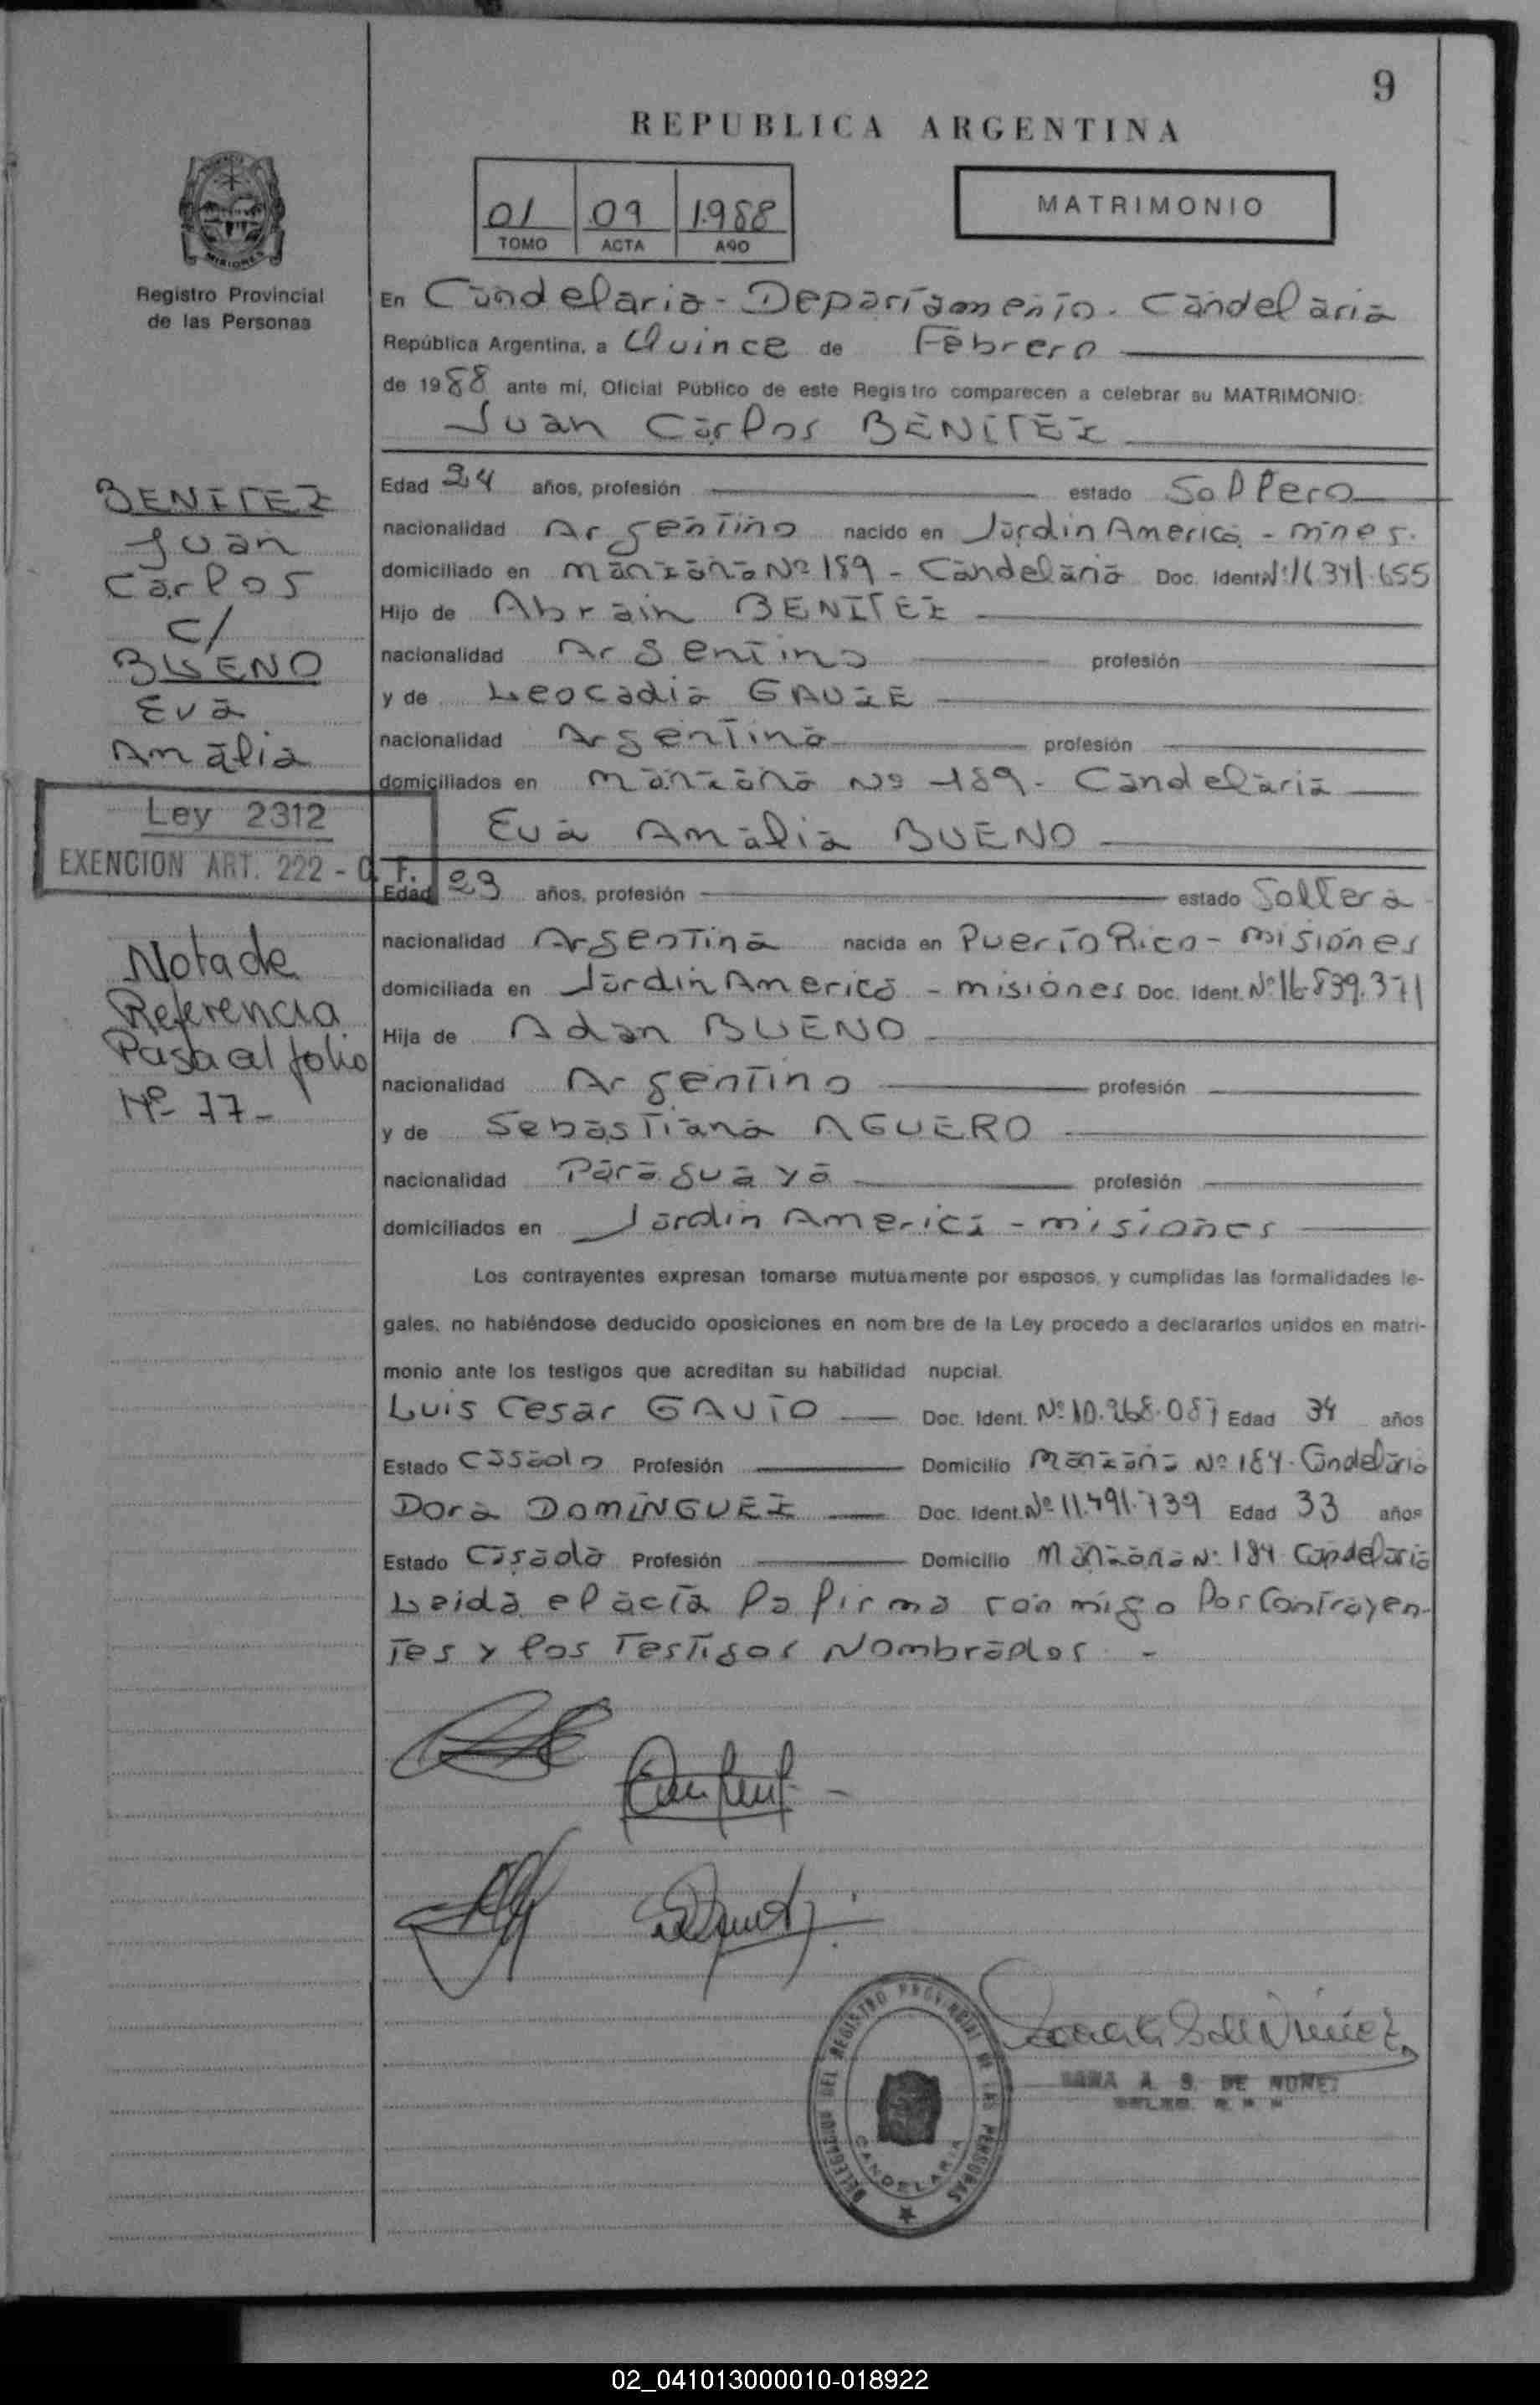 9
REPUBLICA ARGENTINA
01 09 1.988
TOMO ACTA AÑO
MATRIMONIO
MISIONES
Registro Provincial
de las Personas
En Candelaria - Departamento - Candelaria
República Argentina, a Quince de Febrero
de 1988 ante mí, Oficial Público de este Registro comparecen a celebrar su MATRIMONIO:
Juan Carlos BENITEZ
BENITEZ
Juan
Carlos
c/
BUENO
Eva
Amalia
Ley 2312
EXENCION ART. 222 - C. F.
Nota de
Referencia
Pasa al folio
Nº 77-
Edad 24 años, profesión estado Soltero
nacionalidad Argentino nacido en Jardin America - mnes.
domiciliado en manzana Nº 189 - Candelaria Doc. Ident. Nº 16.341.655
Hijo de Abrain BENITEZ
nacionalidad Argentino profesión
y de Leocadia GAUZE
nacionalidad Argentina profesión
domiciliados en manzana Nº 189 - Candelaria
Eva Amalia BUENO
Edad 23 años, profesión estado Soltera
nacionalidad Argentina nacida en Puerto Rico - misiones
domiciliada en Jardin America - misiones Doc. Ident. Nº 16.839.371
Hija de Adan BUENO
nacionalidad Argentino profesión
y de Sebastiana AGUERO
nacionalidad Paraguaya profesión
domiciliados en Jardin America - misiones
Los contrayentes expresan tomarse mutuamente por esposos, y cumplidas las formalidades le-
gales, no habiéndose deducido oposiciones en nombre de la Ley procedo a declararlos unidos en matri-
monio ante los testigos que acreditan su habilidad nupcial.
Luis Cesar GAUTO Doc. Ident. Nº 10.268.087 Edad 34 años
Estado Casado Profesión Domicilio Manzana Nº 184 - Candelaria
Dora DOMINGUEZ Doc. Ident. Nº 11.491.739 Edad 33 años
Estado Casada Profesión Domicilio Manzana Nº 184 Candelaria
Leida el acta la firma con migo los Contrayen-
tes y los Testigos Nombrados. -
DELEGACION DEL REGISTRO PROVINCIAL DE LAS PERSONAS
CANDELARIA
SARA A. S. DE NUÑEZ
02_041013000010-018922